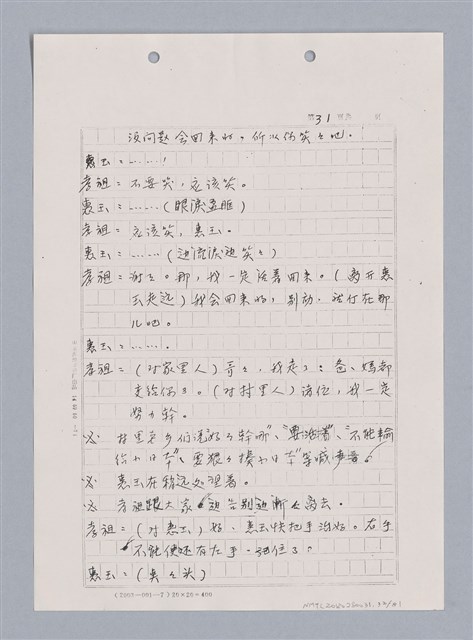 31
没问题会回来的。所以你笑笑吧。
惠玉：……！
孝祖：不要哭，应该笑。
惠玉：……（眼泪盈眶）
孝祖：应该笑，惠玉。
惠玉：……（边流泪边笑笑）
孝祖：谢谢。那，我一定活着回来。（离开惠
玉走远）我会回来的，别动，站在那
儿吧。
惠玉：……。
孝祖：（对家里人）哥哥，我走了：爸、妈都
交给你了。（对村里人）诸位，我一定
努力干。
※ 村里乡们送"好好干哪"、"要活着"、"不能输
给小日本"、要狠狠揍小日本"等喊声音。
※ 惠玉在稍远处望着。
※ 孝祖跟大家 边告别边渐渐离去。
孝祖：（对惠玉）好，惠玉快把手治好。右手
不能使还有左手
惠玉：（点点头）
(2007-001-7) 20×20=400